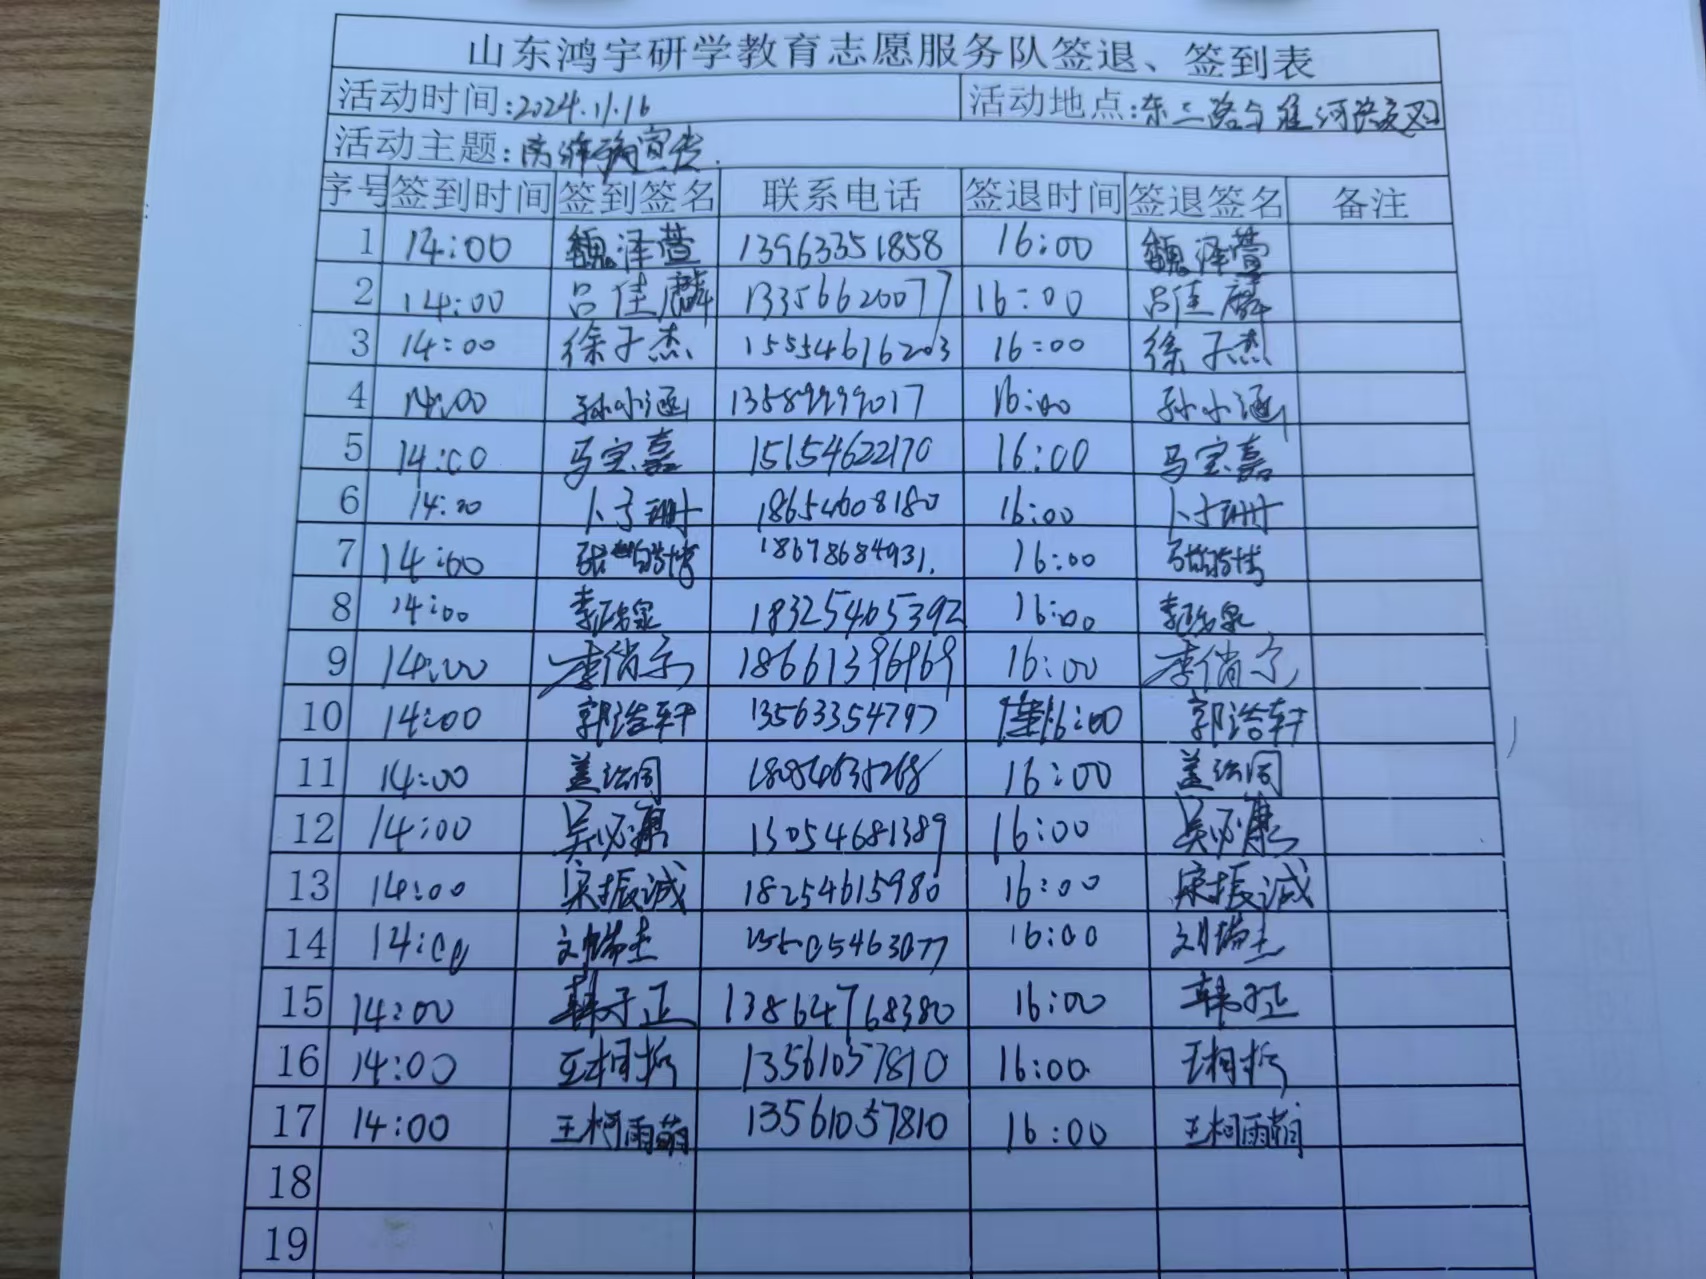 山东鸿宇研学教育志愿服务队签退、签到表
活动时间:2024.11.16 活动地点:东二路与淮河路交叉口
活动主题:防诈骗宣传.
序号 签到时间 签到签名 联系电话 签退时间 签退签名 备注
1 14:00 魏泽萱 13963351858 16:00 魏泽萱
2 14:00 吕佳麟 13356620077 16:00 吕佳麟
3 14:00 徐子杰 15554616203 16:00 徐子杰
4 14:00 孙小涵 13589999017 16:00 孙小涵
5 14:00 马宝嘉 15154622170 16:00 马宝嘉
6 14:00 卜子珊 18654608180 16:00 卜子珊
7 14:00 18678684931. 16:00
8 14:00 18325405392 16:00
9 14:00 李俏尔 18661396969 16:00 李俏尔
10 14:00 郭浩轩 13563354797 16:00 郭浩轩
11 14:00 16:00
12 14:00 吴必濂 13054681389 16:00
13 14:00 宋振诚 18254615980 16:00 宋振诚
14 14:00 16:00
15 14:00 韩子正 13864768380 16:00 韩子正
16 14:00 13561057810 16:00
17 14:00 王柯雨萌 13561057810 16:00 王柯雨萌
18
19